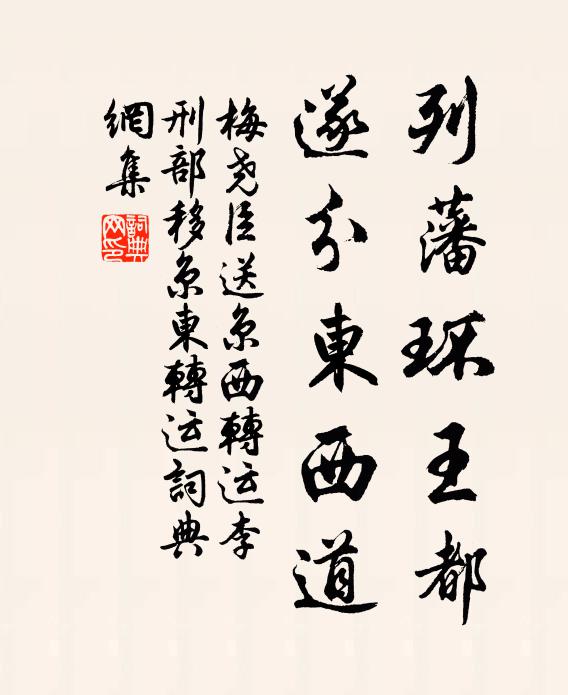 列藩环王都
遂分東西道
梅尧臣送京西轉运李
刑部移京東轉运詞典
網集
詞典网印